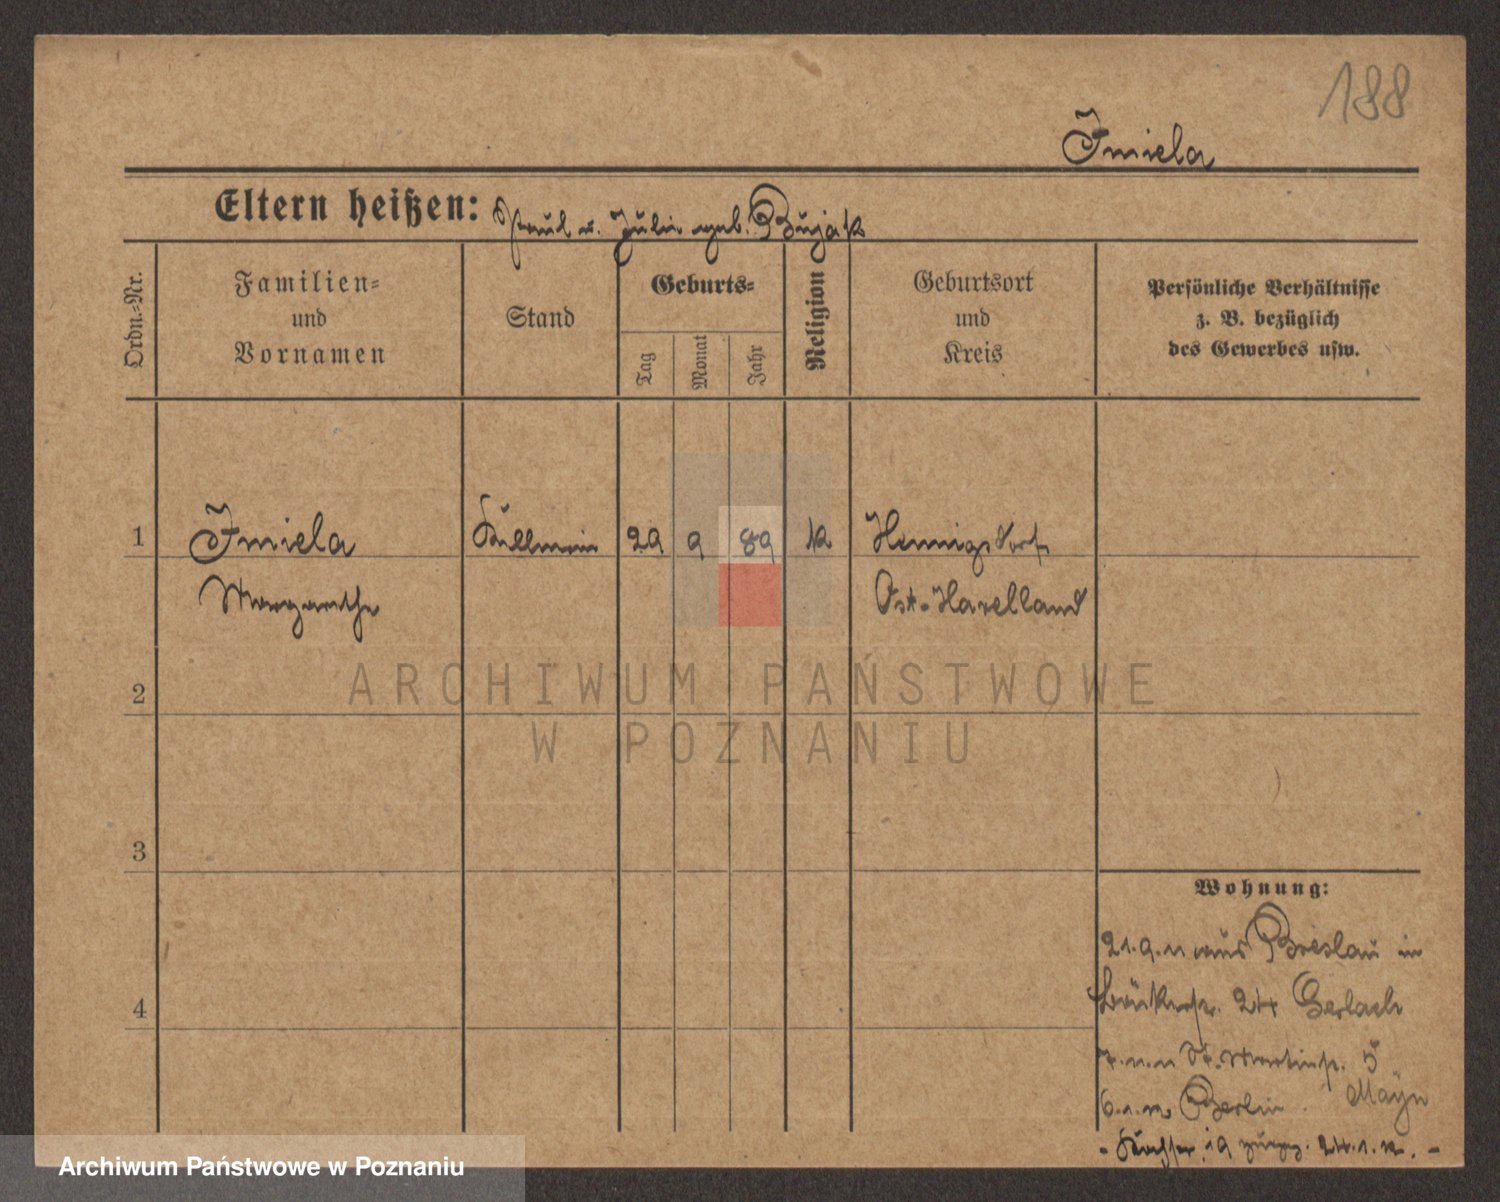 188
Imiela
Eltern heißen: Paul u. Julie geb. Bujak
Ordn.-Nr.
Familien-
und
Vornamen
Stand
Geburts-
Tag
Monat
Jahr
Religion
Geburtsort
und
Kreis
Persönliche Verhältnisse
z. B. bezüglich
des Gewerbes usw.
1 Imiela 29 9 89 k Hennigsdorf
Margarethe Ost-Havelland
ARCHIWUM PAŃSTWOWE
W POZNANIU
2
3
4
Wohnung:
21.9.11 aus Breslau in
24 Gerlach
7.11.11 St. Martinstr. 5
6.1.12 Berlin. Mayn
19 24.1.12. -
Archiwum Państwowe w Poznaniu